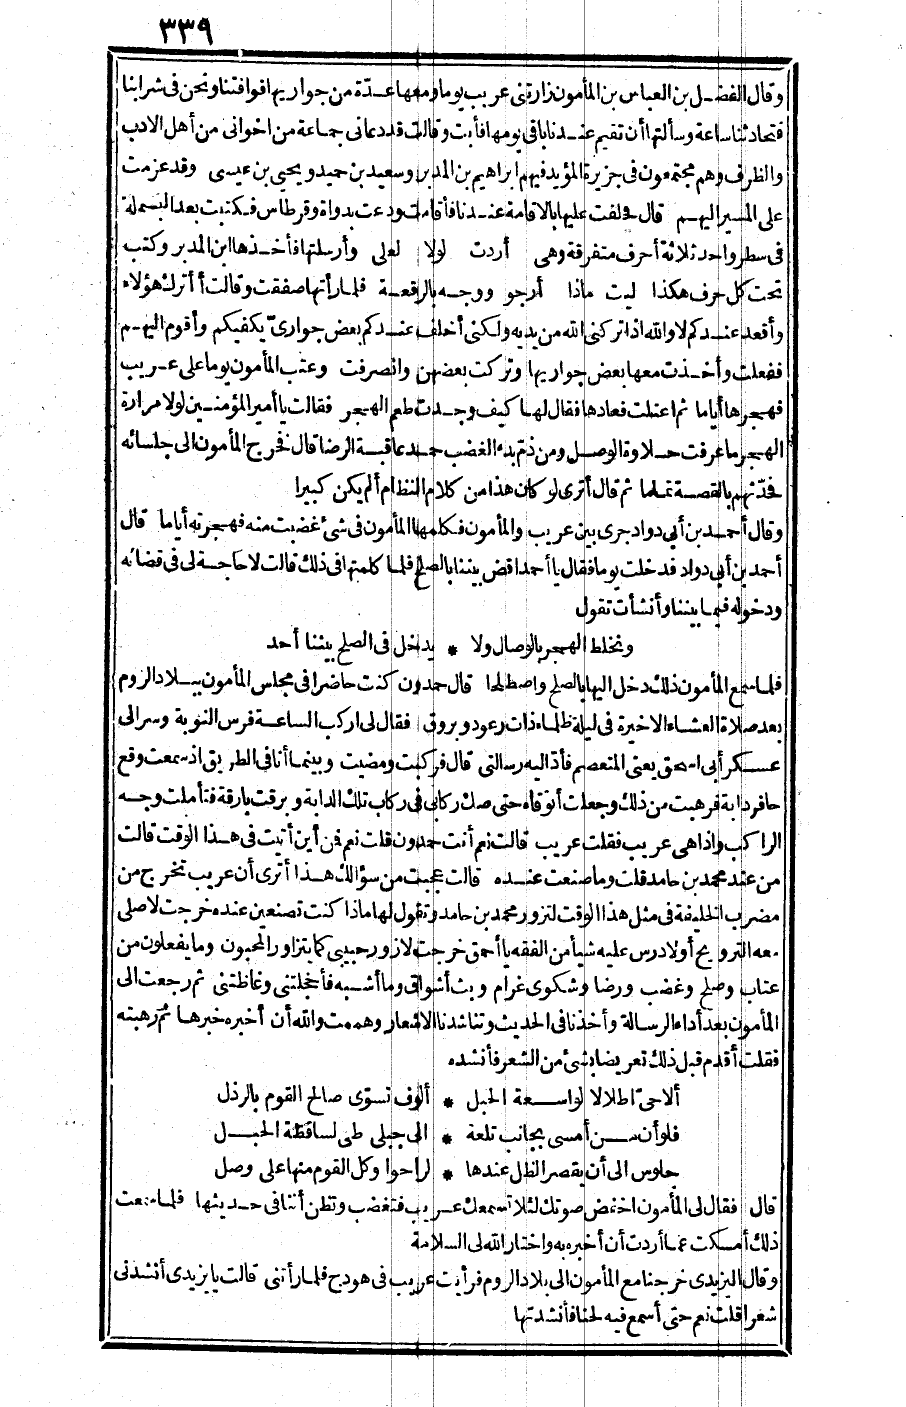 ٣٣٩
وقال الفضل بن العباس بن المأمون زارتني عريب يوما ومعها عدّة من جواريها فوافتنا ونحن في شرابنا
فتحادثنا ساعة وسألتها أن تقيم عندنا باقي يومها فأبت وقالت قد دعاني جماعة من اخواني من أهل الادب
والظرف وهم مجتمعون في جزيرة المؤيد فيهم ابراهيم بن المدبر وسعيد بن حميد ويحيى بن عيسى وقد عزمت
على المسير اليهم قال فحلفت عليها بالاقامة عندنا فأقامت ودعت بدواة وقرطاس فكتبت بعد البسملة
في سطر واحد ثلاثة أحرف متفرقة وهي أردت لولا لعلي وأرسلتها فأخذها ابن المدبر وكتب
تحت كل حرف هكذا ليت ماذا أرجو ووجه بالرقعة فلما رأتها صفقت وقالت أأترك هؤلاء
وأقعد عندكم لا والله اذا تركني الله من يديه ولكني أخلف عندكم بعض جواريّ يكفيكم وأقوم اليهم
ففعلت وأخذت معها بعض جواريها وتركت بعضهن وانصرفت وعتب المأمون يوما على عريب
فهجرها أياما ثم اعتلت فعادها فقال لها كيف وجدت طعم الهجر فقالت يا أمير المؤمنين لولا مرارة
الهجر ما عرفت حلاوة الوصل ومن ذم بدء الغضب حمد عاقبة الرضا قال فخرج المأمون الى جلسائه
فحدّثهم بالقصة تماما ثم قال أترى لو كان هذا من كلام النظام ألم يكن كبيرا
وقال أحمد بن أبي دواد جرى بين عريب والمأمون فكلمها المأمون في شئ غضبت منه فهجرته أياما قال
أحمد بن أبي دواد فدخلت يوما فقال يا أحمد اقض بيننا بالصلح فلما كلمتها في ذلك قالت لا حاجة لي في قضائه
ودخوله فيما بيننا وأنشأت تقول
ونخلط الهجر بالوصال ولا * يدخل في الصلح بيننا أحد
فلما سمع المأمون ذلك دخل اليها بالصلح واصطلحا قال حمدون كنت حاضرا في مجلس المأمون ببلاد الروم
بعد صلاة العشاء الاخيرة في ليلة ظلماء ذات رعود وبروق فقال لي اركب الساعة فرس النوبة وسر الى
عسكر أبي اسحق يعني المعتصم فأدّ اليه رسالتي قال فركبت ومضيت وبينما أنا في الطريق اذ سمعت وقع
حافر دابة فرهبت من ذلك وجعلت أتوقاه حتى صك ركابي في ركاب تلك الدابة وبرقت بارقة فتأملت وجه
الراكب واذا هي عريب فقلت عريب قالت نعم أنت حمدون قلت نعم فمن أين أتيت في هذا الوقت قالت
من عند محمد بن حامد قلت وما صنعت عنده قالت عجبت من سؤالك هذا أترى أن عريب تخرج من
مضرب الخليفة في مثل هذا الوقت لتزور محمد بن حامد وتقول لها ماذا كنت تصنعين عنده خرجت لاصلي
معه التروايح أولا درس عليه شيأ من الفقه يا أحمق خرجت لازور حبيبي كما يتزاور المحبون وما يفعلون من
عتاب وصلح وغضب ورضا وشكوى غرام وبث أشواق وما أشبه فأخجلتني وغاظتني ثم رجعت الى
المأمون بعد أداء الرسالة وأخذنا في الحديث وتناشدنا الاشعار وهممت والله أن أخبره خبرها ثم رهبته
فقلت أقدم قبل ذلك تعريضا بشئ من الشعر فأنشده
ألا حيّ اطلالا لواسعة الحبل * ألوف تسوّى صالح القوم بالرذل
فلو أن من أمسى بجانب تلعة * الى جبلي طي لساقطة الحبل
جلوس الى أن يقصر الظل عندها * لراحوا وكل القوم منها على وصل
قال فقال لي المأمون اخفض صوتك لئلا تسمعك عريب فتغضب وتظن أننا في حديثها فلما سمعت
ذلك أمسكت عما أردت أن أخبره به واختار الله لي السلامة
وقال اليزيدي خرجنا مع المأمون الى بلاد الروم فرأيت عريب في هودج فلما رأتني قالت يا يزيدي أنشدني
شعرا قلت نعم حتى أسمع فيه لحنا فأنشدتها